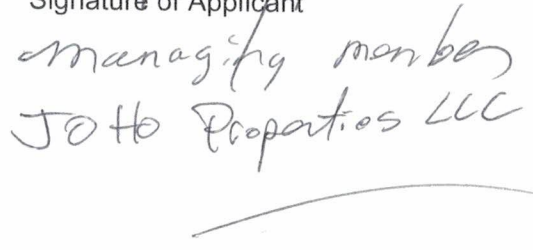 Signature of Applicant
managing member
JOHO Properties LLC